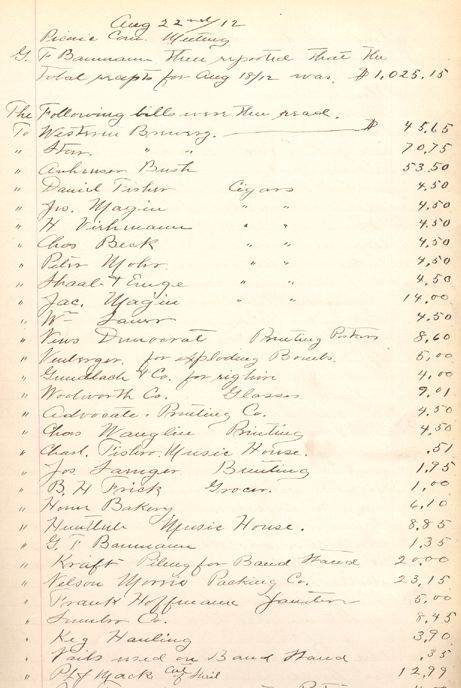 Aug 22nd/12
Picnic Com. Meeting
G. F Baumann then reported that the
total receipts for Aug 18/12 was. $1,025.15
The Following bills were then read.
To Western Brewery. $ 45,65
" Star. " " 70,75
" Anheuser Bush 53.50
" Daniel Fisher Cigars 4.50
" Jos. Magin " " 4,50
" H " " 4,50
" Chas Beck " " 4,50
" Peter Mohr " " 4,50
" & " " 4,50
" Jac. Magin " " 14,00
" Wm 4.50
" News Democrat Printing Posters 8,60
" for exploding Bombs. 5,00
" Gundlach & Co. for 4,00
" Woolworth Co. Glasses 9,01
" Advocate. Printing Co. 4,50
" Chas Wangelin Printing 4,50
" Music House. .51
" Jos Bunting 1,75
" B. H Frick Grocer. 1,00
" Horn Bakery 6,10
" Music House. 8,85
" G. F Baumann 1,35
" Kraft Piling for Band Stand 20.00
" Nelson Morris Packing Co. 23,15
" Frank Hoffmann Janitor 5,00
" Lumber Co. 8,45
" Keg Hauling 3,90
" Nails used on Band Stand .35
" Mack 12,99